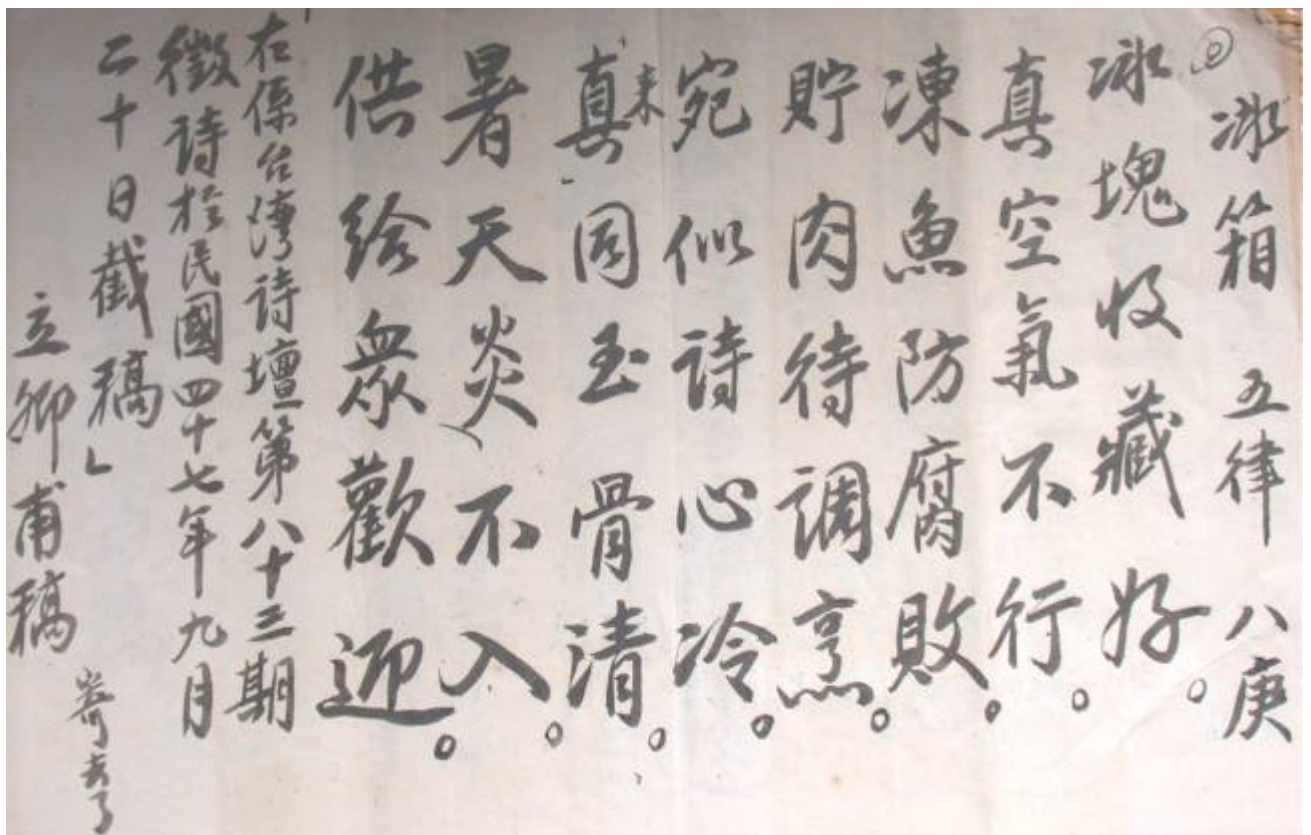 冰箱 五律 八庚
冰塊收藏好。
真空氣不行。
凍魚防腐敗。
貯肉待調烹。
宛似詩心冷。
真同玉骨清。
暑天炎不入。
供給眾歡迎。
右係台灣詩壇第八十三期
徵詩於民國四十七年九月
二十日截稿」
立卿甫稿
寄去了